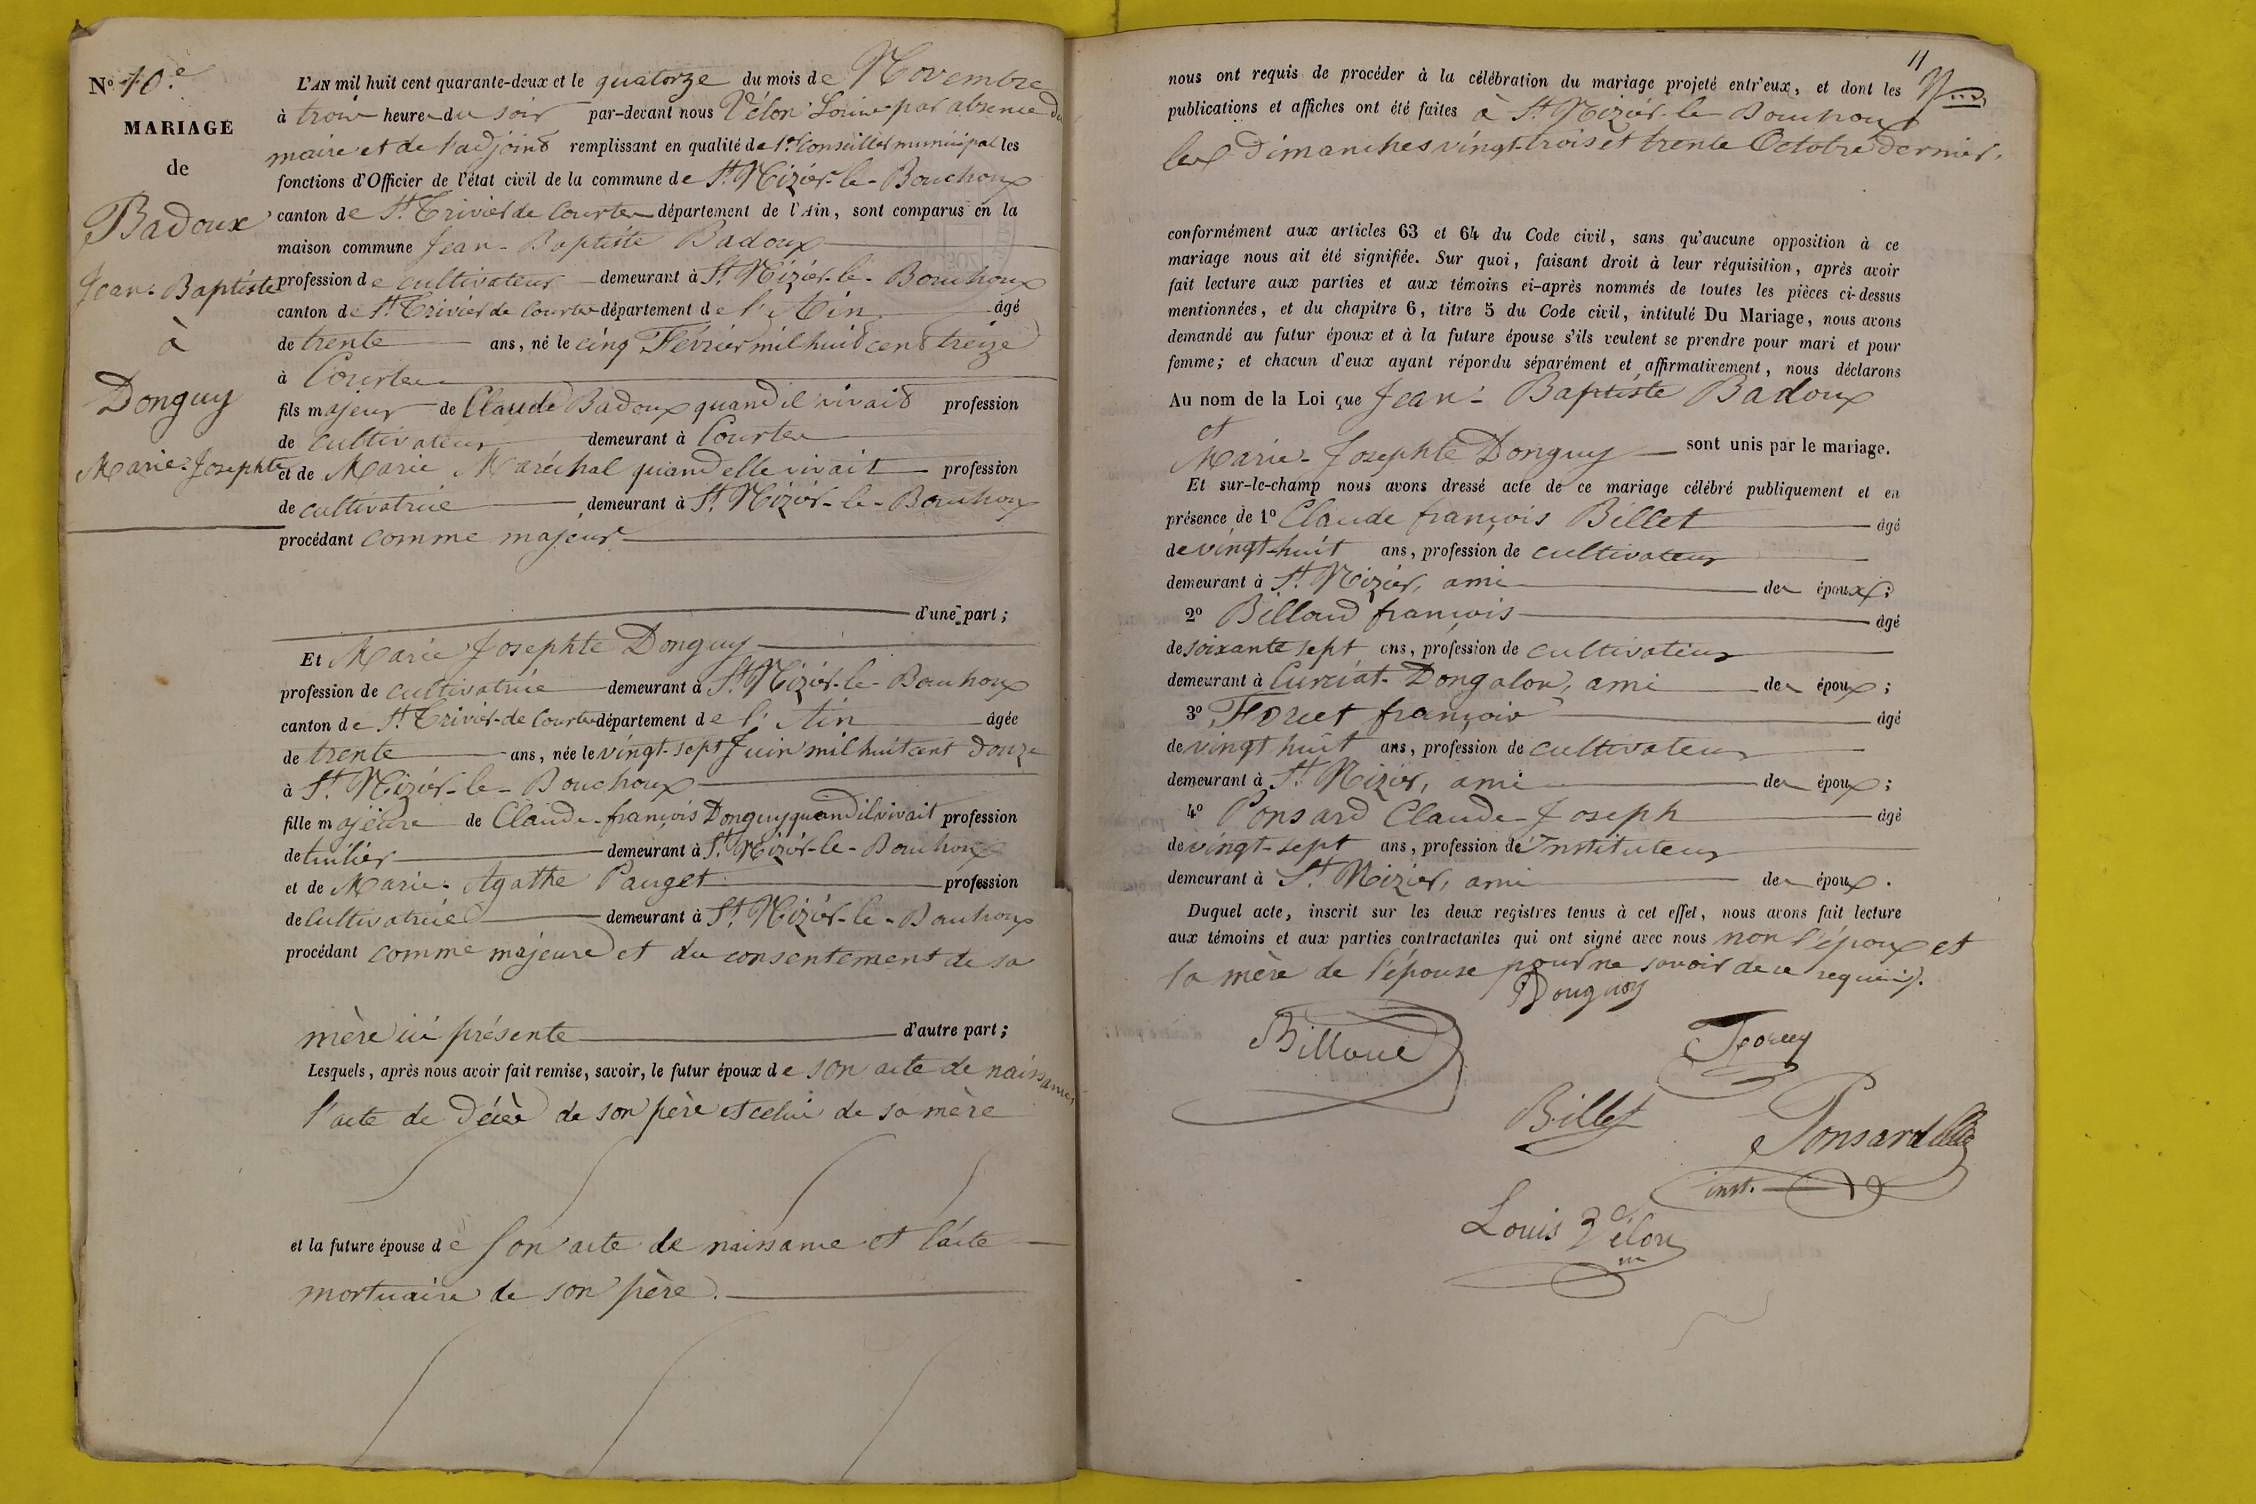 N.º 10.e
MARIAGE
de
Badoux
Jean-Baptiste
à
Donguy
Marie-Josephte
L'AN mil huit cent quarante-deux et le quatorze du mois de Novembre
à trois heures du soir par-devant nous Vélon Louis par absence du
maire et de l'adjoint remplissant en qualité de 1er Conseiller municipal les
fonctions d'Officier de l'état civil de la commune de St. Nizier-le-Bouchoux
canton de St. Trivier de Courtes département de l'Ain, sont comparus en la
maison commune Jean-Baptiste Badoux
profession de cultivateur demeurant à St. Nizier-le-Bouchoux
canton de St. Trivier de Courtes département de l'Ain âgé
de trente ans, né le cinq Février mil huit cent treize
à Courtes
fils majeur de Claude Badoux quand il vivait profession
de cultivateur demeurant à Courtes
et de Marie Maréchal quand elle vivait profession
de cultivatrice demeurant à St. Nizier-le-Bouchoux
procédant comme majeur
d'une part;
Et Marie Josephte Donguy
profession de cultivatrice demeurant à St. Nizier-le-Bouchoux
canton de St. Trivier-de Courtes département de l'Ain âgée
de trente ans, née le vingt-sept Juin mil huit cent douze
à St. Nizier-le-Bouchoux
fille majeure de Claude-françois Donguy quand il vivait profession
de tuilier demeurant à St. Nizier-le-Bouchoux
et de Marie-Agathe Pauget profession
de Cultivatrice demeurant à St. Nizier-le-Bouchoux
procédant comme majeure et du consentement de sa
mère ici présente d'autre part;
Lesquels, après nous avoir fait remise, savoir, le futur époux de son acte de naissance,
l'acte de décès de son père et celui de sa mère
et la future épouse de son acte de naissance et l'acte
mortuaire de son père.
11
nous ont requis de procéder à la célébration du mariage projeté entr'eux, et dont les
publications et affiches ont été faites à St. Nizier-le-Bouchoux
les Dimanches vingt-trois et trente Octobre dernier.
conformément aux articles 63 et 64 du Code civil, sans qu'aucune opposition à ce
mariage nous ait été signifiée. Sur quoi, faisant droit à leur réquisition, après avoir
fait lecture aux parties et aux témoins ci-après nommés de toutes les pièces ci-dessus
mentionnées, et du chapitre 6, titre 5 du Code civil, intitulé Du Mariage, nous avons
demandé au futur époux et à la future épouse s'ils veulent se prendre pour mari et pour
femme; et chacun d'eux ayant répondu séparément et affirmativement, nous déclarons
Au nom de la Loi que Jean-Baptiste Badoux
et
Marie-Josephte Donguy sont unis par le mariage.
Et sur-le-champ nous avons dressé acte de ce mariage célébré publiquement et en
présence de 1º Claude françois Billet âgé
de vingt-huit ans, profession de cultivateur
demeurant à St. Nizier, ami des époux;
2º Billoud françois âgé
de soixante sept ans, profession de cultivateur
demeurant à Curciat-Dongalon, ami des époux;
3º Foret françois âgé
de vingt huit ans, profession de cultivateur
demeurant à St. Nizier, ami des époux;
4º Ponsard Claude-Joseph âgé
de vingt-sept ans, profession de Instituteur
demeurant à St. Nizier, ami des époux.
Duquel acte, inscrit sur les deux registres tenus à cet effet, nous avons fait lecture
aux témoins et aux parties contractantes qui ont signé avec nous non l'époux et
la mère de l'épouse pour ne savoir de ce requis.
Donguy
Billoud
Billet
Ponsard
inst.
Louis Vélon